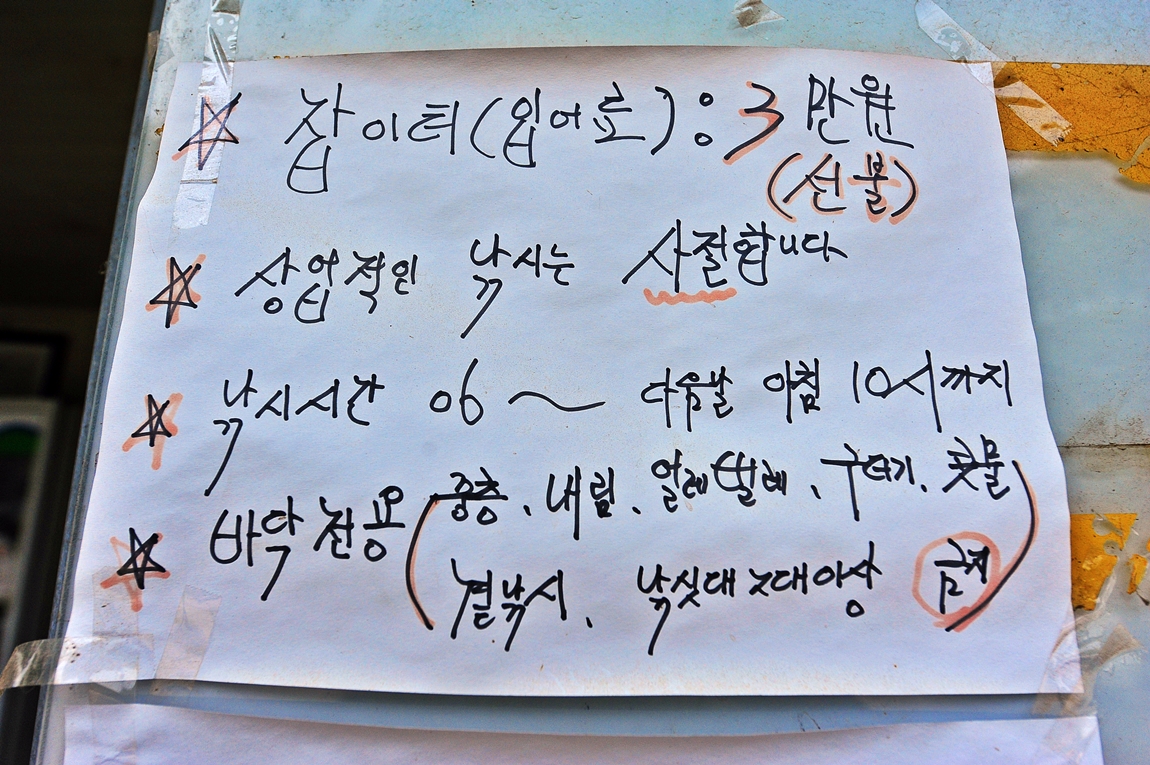 ☆ 잡이터(입어료) : 3만원
(선불)
☆ 상업적인 낚시는 사절합니다
☆ 낚시시간 06 ~ 다음날 아침 10시까지
☆ 바닥전용(중층、내림、얼레벌레、구더기、콧물
결낚시、 낚싯대 2대이상 금지)